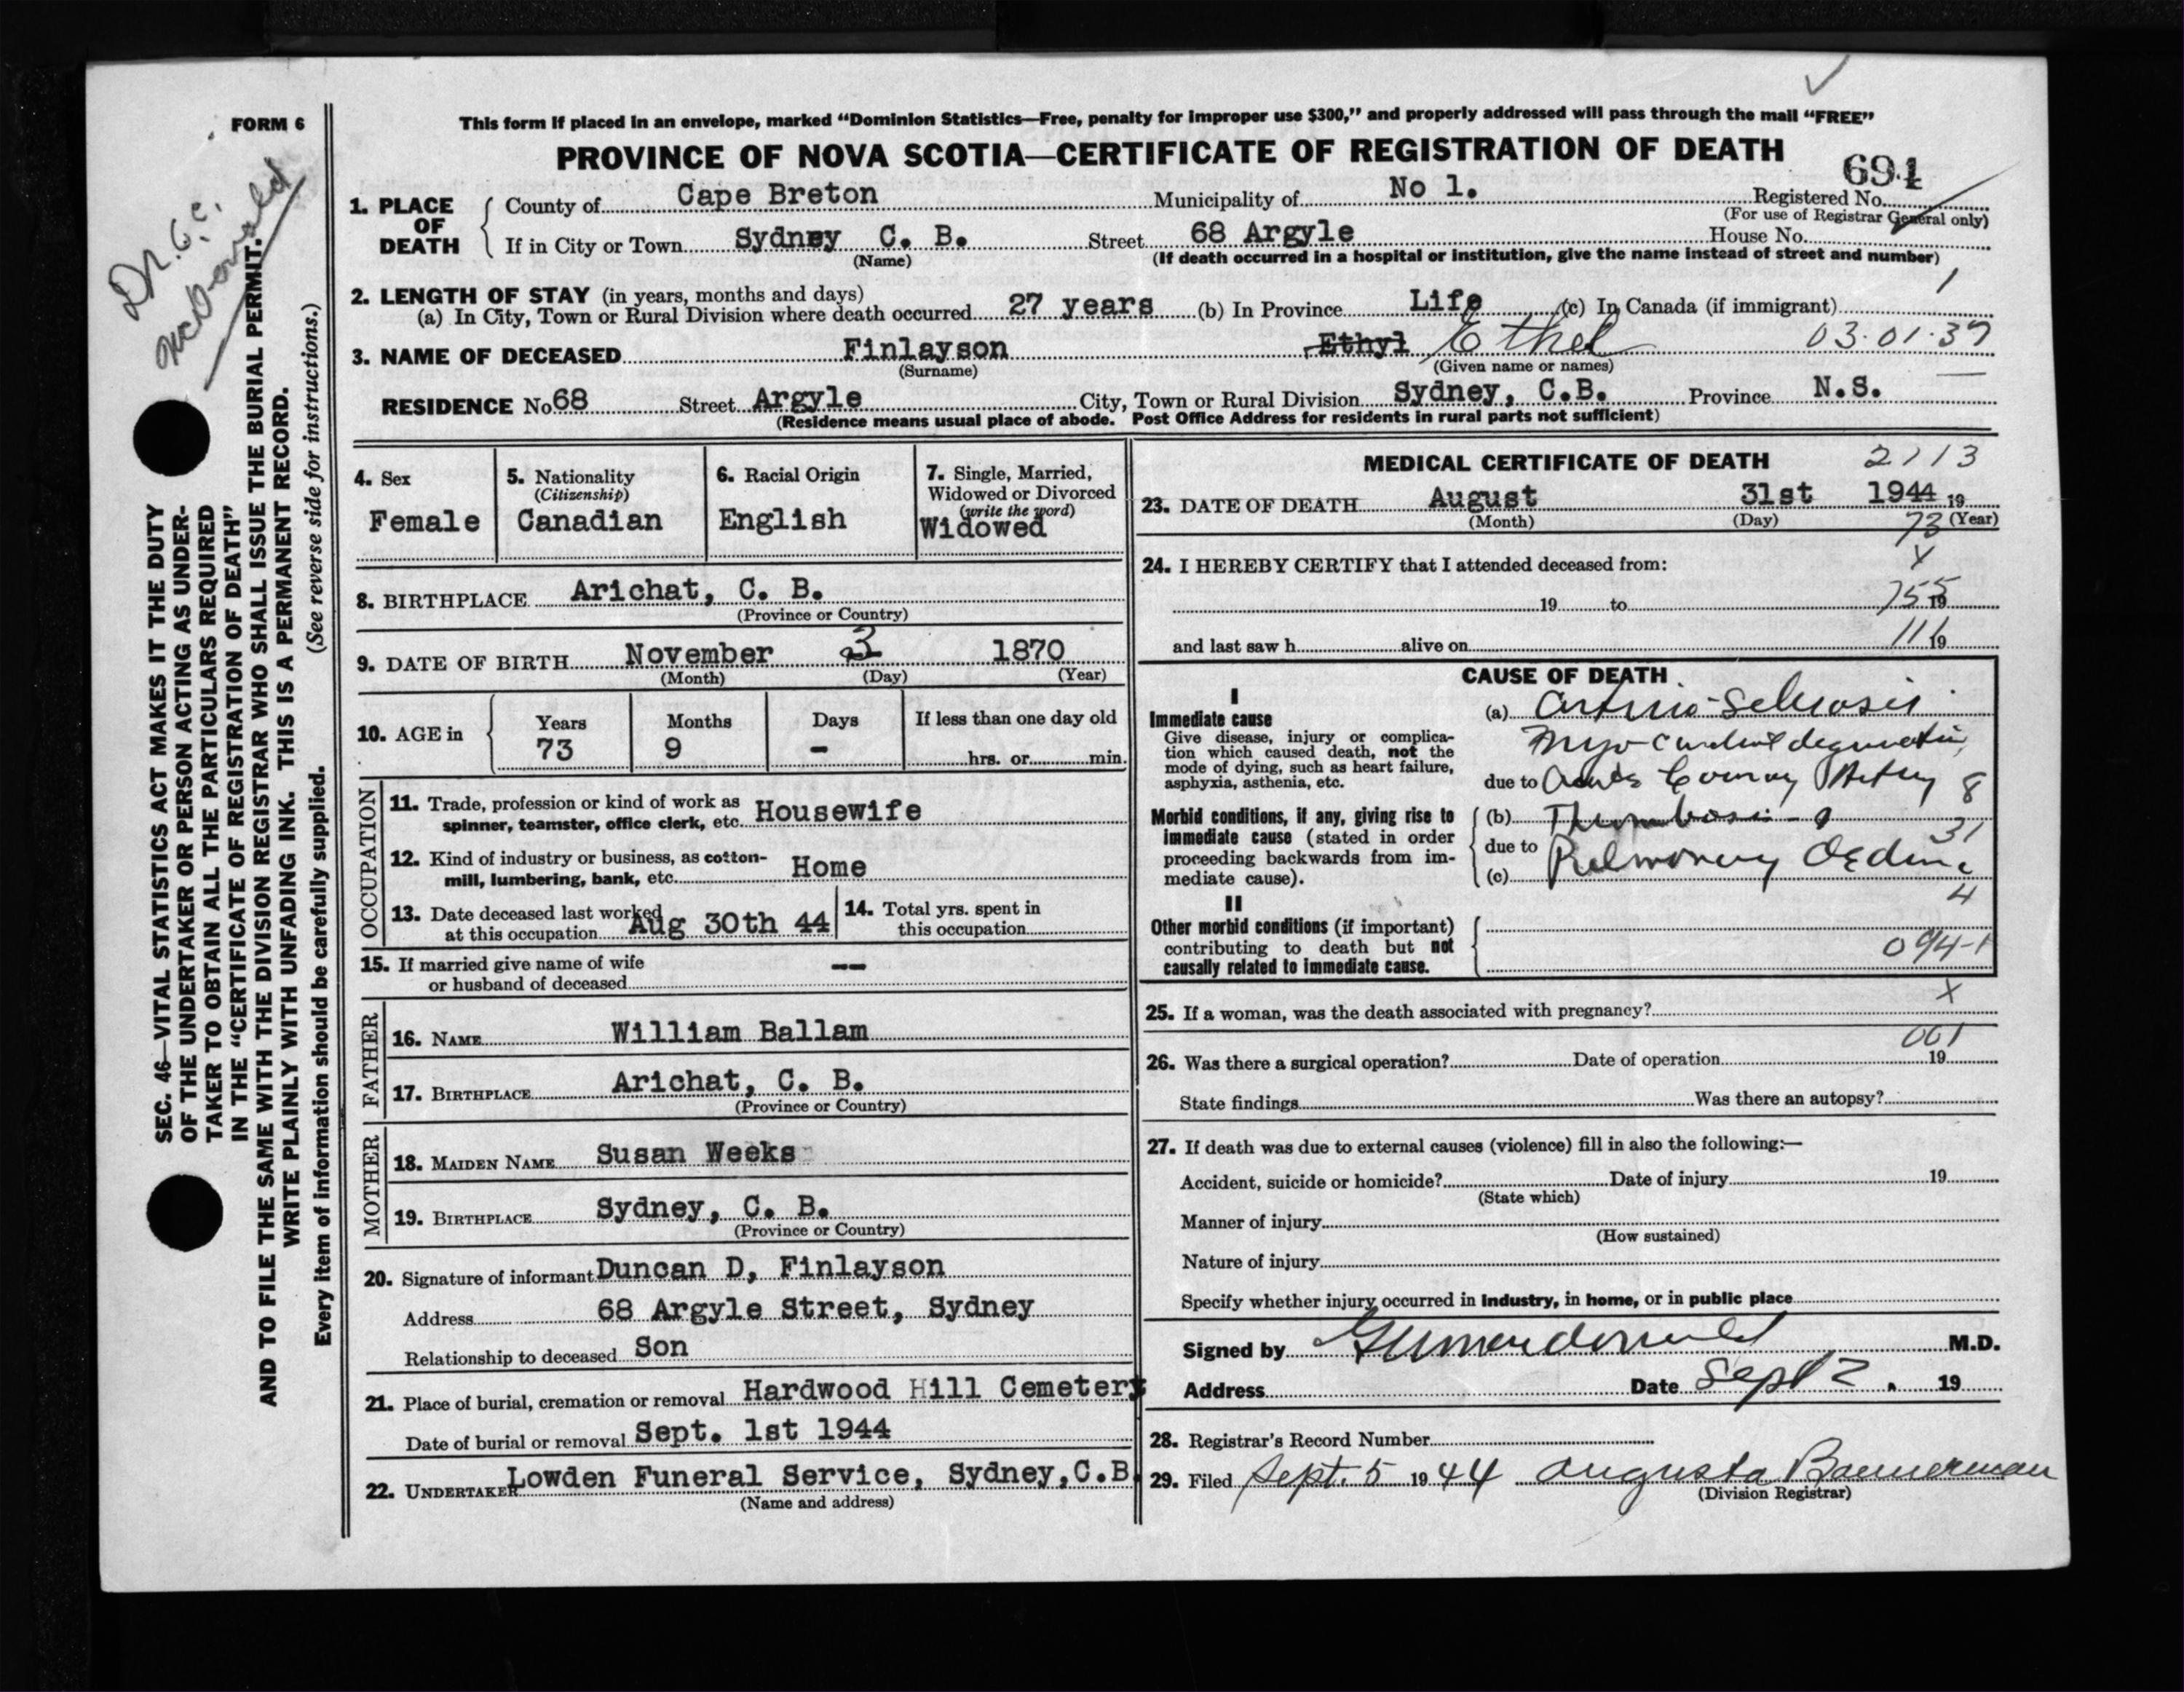 FORM 6
This form if placed in an envelope, marked “Dominion Statistics—Free, penalty for improper use $300,” and properly addressed will pass through the mail “FREE”
PROVINCE OF NOVA SCOTIA—CERTIFICATE OF REGISTRATION OF DEATH
694
1. PLACE OF DEATH
County of Cape Breton Municipality of No 1. Registered No.
(For use of Registrar General only)
If in City or Town Sydney C. B. Street 68 Argyle House No.
(Name) (If death occurred in a hospital or institution, give the name instead of street and number)
2. LENGTH OF STAY (in years, months and days) 1
(a) In City, Town or Rural Division where death occurred 27 years (b) In Province Life (c) In Canada (if immigrant)
3. NAME OF DECEASED Finlayson Ethyl Ethel 03.01.39
(Surname) (Given name or names)
RESIDENCE No 68 Street Argyle City, Town or Rural Division Sydney, C.B. Province N.S.
(Residence means usual place of abode. Post Office Address for residents in rural parts not sufficient)
4. Sex
Female
5. Nationality
(Citizenship)
Canadian
6. Racial Origin
English
7. Single, Married,
Widowed or Divorced
(write the word)
Widowed
8. BIRTHPLACE Arichat, C. B.
(Province or Country)
9. DATE OF BIRTH November 3 1870
(Month) (Day) (Year)
10. AGE in Years Months Days If less than one day old
73 9 - hrs. or min.
OCCUPATION
11. Trade, profession or kind of work as
spinner, teamster, office clerk, etc. Housewife
12. Kind of industry or business, as cotton-
mill, lumbering, bank, etc. Home
13. Date deceased last worked
at this occupation Aug 30th 44
14. Total yrs. spent in
this occupation
15. If married give name of wife
or husband of deceased --
FATHER
16. NAME William Ballam
17. BIRTHPLACE Arichat, C. B.
(Province or Country)
MOTHER
18. MAIDEN NAME Susan Weeks
19. BIRTHPLACE Sydney, C. B.
(Province or Country)
20. Signature of informant Duncan D, Finlayson
Address 68 Argyle Street, Sydney
Relationship to deceased Son
21. Place of burial, cremation or removal Hardwood Hill Cemetery
Date of burial or removal Sept. 1st 1944
22. UNDERTAKER Lowden Funeral Service, Sydney, C.B.
(Name and address)
MEDICAL CERTIFICATE OF DEATH 2113
23. DATE OF DEATH August 31st 1944 19
(Month) (Day) (Year)
73
24. I HEREBY CERTIFY that I attended deceased from: X
19 to 19
755
and last saw h alive on 19
111
CAUSE OF DEATH
I
Immediate cause
Give disease, injury or complica-
tion which caused death, not the
mode of dying, such as heart failure,
asphyxia, asthenia, etc.
(a) Arterio-Sclerosis
Myo-cardial degeneration
due to Acute Coronary Artery 8
Morbid conditions, if any, giving rise to
immediate cause (stated in order
proceeding backwards from im-
mediate cause).
(b) Thrombosis 31
due to
(c) Pulmonary Oedema
4
II
Other morbid conditions (if important)
contributing to death but not
causally related to immediate cause.
094-1
X
25. If a woman, was the death associated with pregnancy?
001
26. Was there a surgical operation? Date of operation 19
State findings Was there an autopsy?
27. If death was due to external causes (violence) fill in also the following:—
Accident, suicide or homicide? Date of injury 19
(State which)
Manner of injury
(How sustained)
Nature of injury
Specify whether injury occurred in industry, in home, or in public place
Signed by M.D.
Address Date Sept 2. 19
28. Registrar's Record Number
29. Filed Sept. 5 1944 Augusta Bannerman
(Division Registrar)
Dr. G. C.
McDonald
SEC. 46—VITAL STATISTICS ACT MAKES IT THE DUTY
OF THE UNDERTAKER OR PERSON ACTING AS UNDER-
TAKER TO OBTAIN ALL THE PARTICULARS REQUIRED
IN THE “CERTIFICATE OF REGISTRATION OF DEATH”
AND TO FILE THE SAME WITH THE DIVISION REGISTRAR WHO SHALL ISSUE THE BURIAL PERMIT.
WRITE PLAINLY WITH UNFADING INK. THIS IS A PERMANENT RECORD.
Every item of information should be carefully supplied. (See reverse side for instructions.)